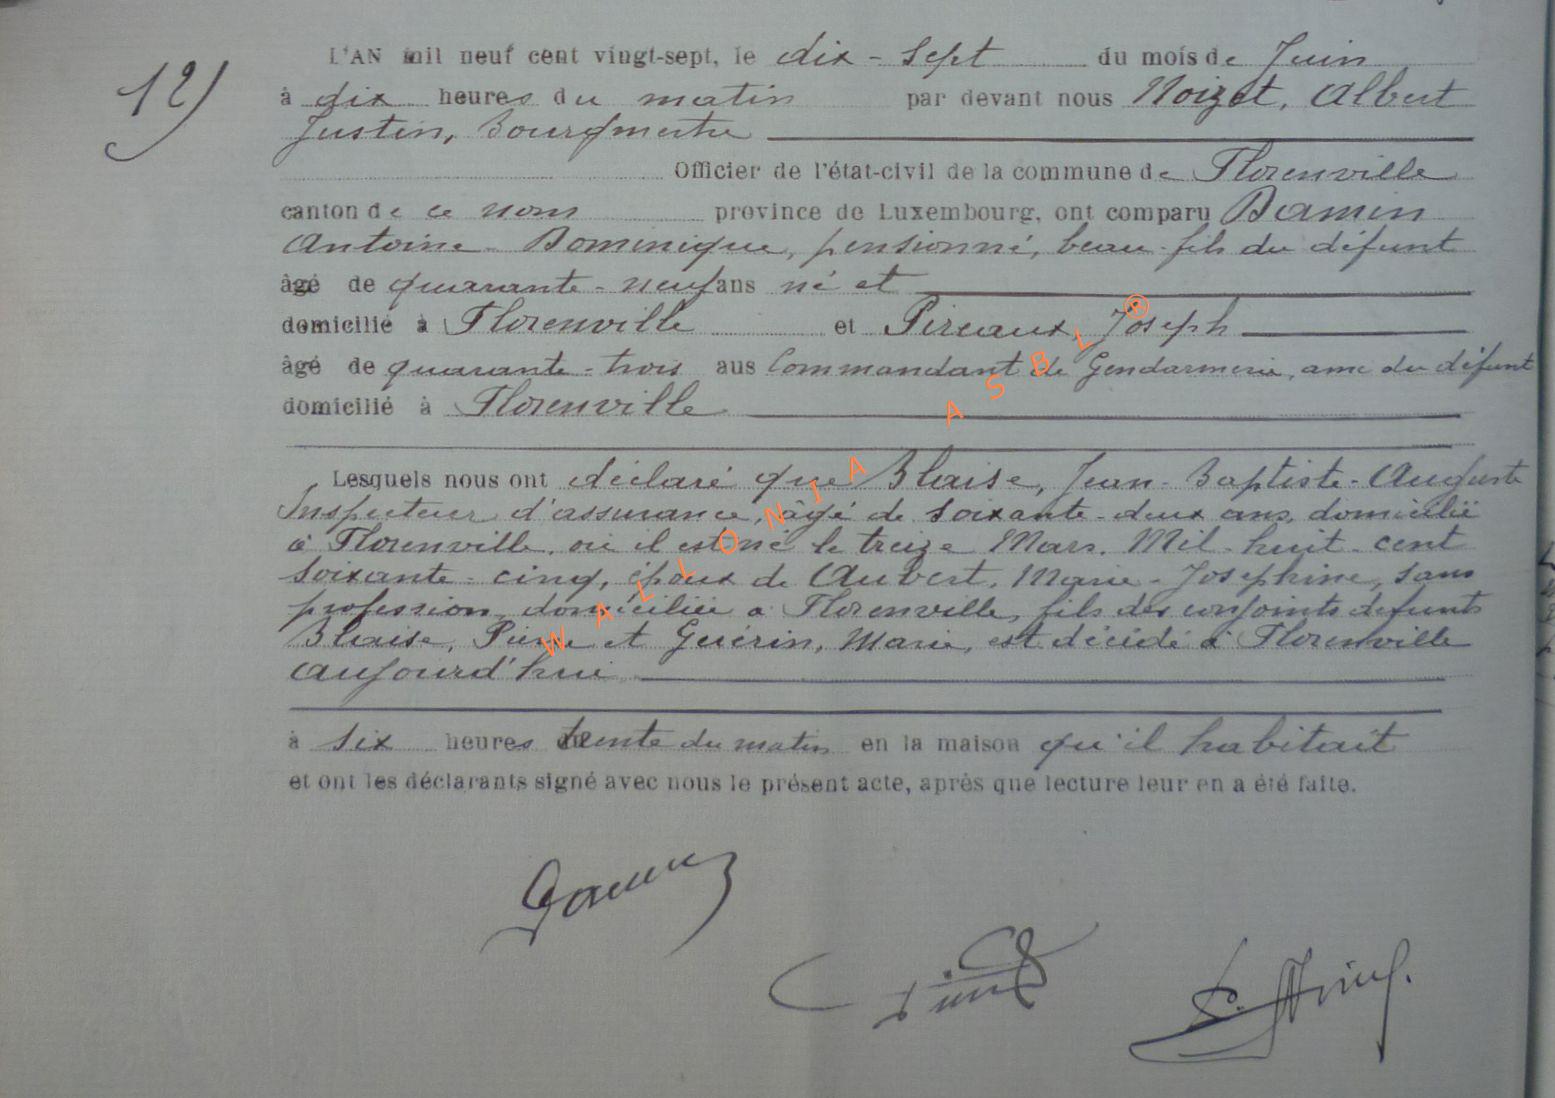 12)
L'AN mil neuf cent vingt-sept, le dix-sept du mois de Juin
à dix heures du matin par devant nous Noizet, Albert
Justin, Bourgmestre
Officier de l'état-civil de la commune de Florenville
canton de ce nom province de Luxembourg, ont comparu Damin
Antoine-Dominique, pensionné, beau-fils du défunt
âgé de quarante-neuf ans né et
domicilié à Florenville et Pireaux, Joseph
âgé de quarante-trois ans Commandant de Gendarmerie, ami du défunt
domicilié à Florenville
Lesquels nous ont déclaré que Blaise, Jean-Baptiste-Auguste
Inspecteur d'assurance, âgé de soixante-deux ans, domicilié
à Florenville, où il est né le treize Mars, Mil-huit-cent
soixante-cinq, époux de Aubert, Marie-Josephine, sans
profession, domiciliée à Florenville, fils des conjoints défunts
Blaise, Pierre et Guérin, Marie, est décédé à Florenville
aujourd'hui
à six heures trente du matin en la maison qu'il habitait
et ont les déclarants signé avec nous le présent acte, après que lecture leur en a été faite.
WALLONIA ASBL ®